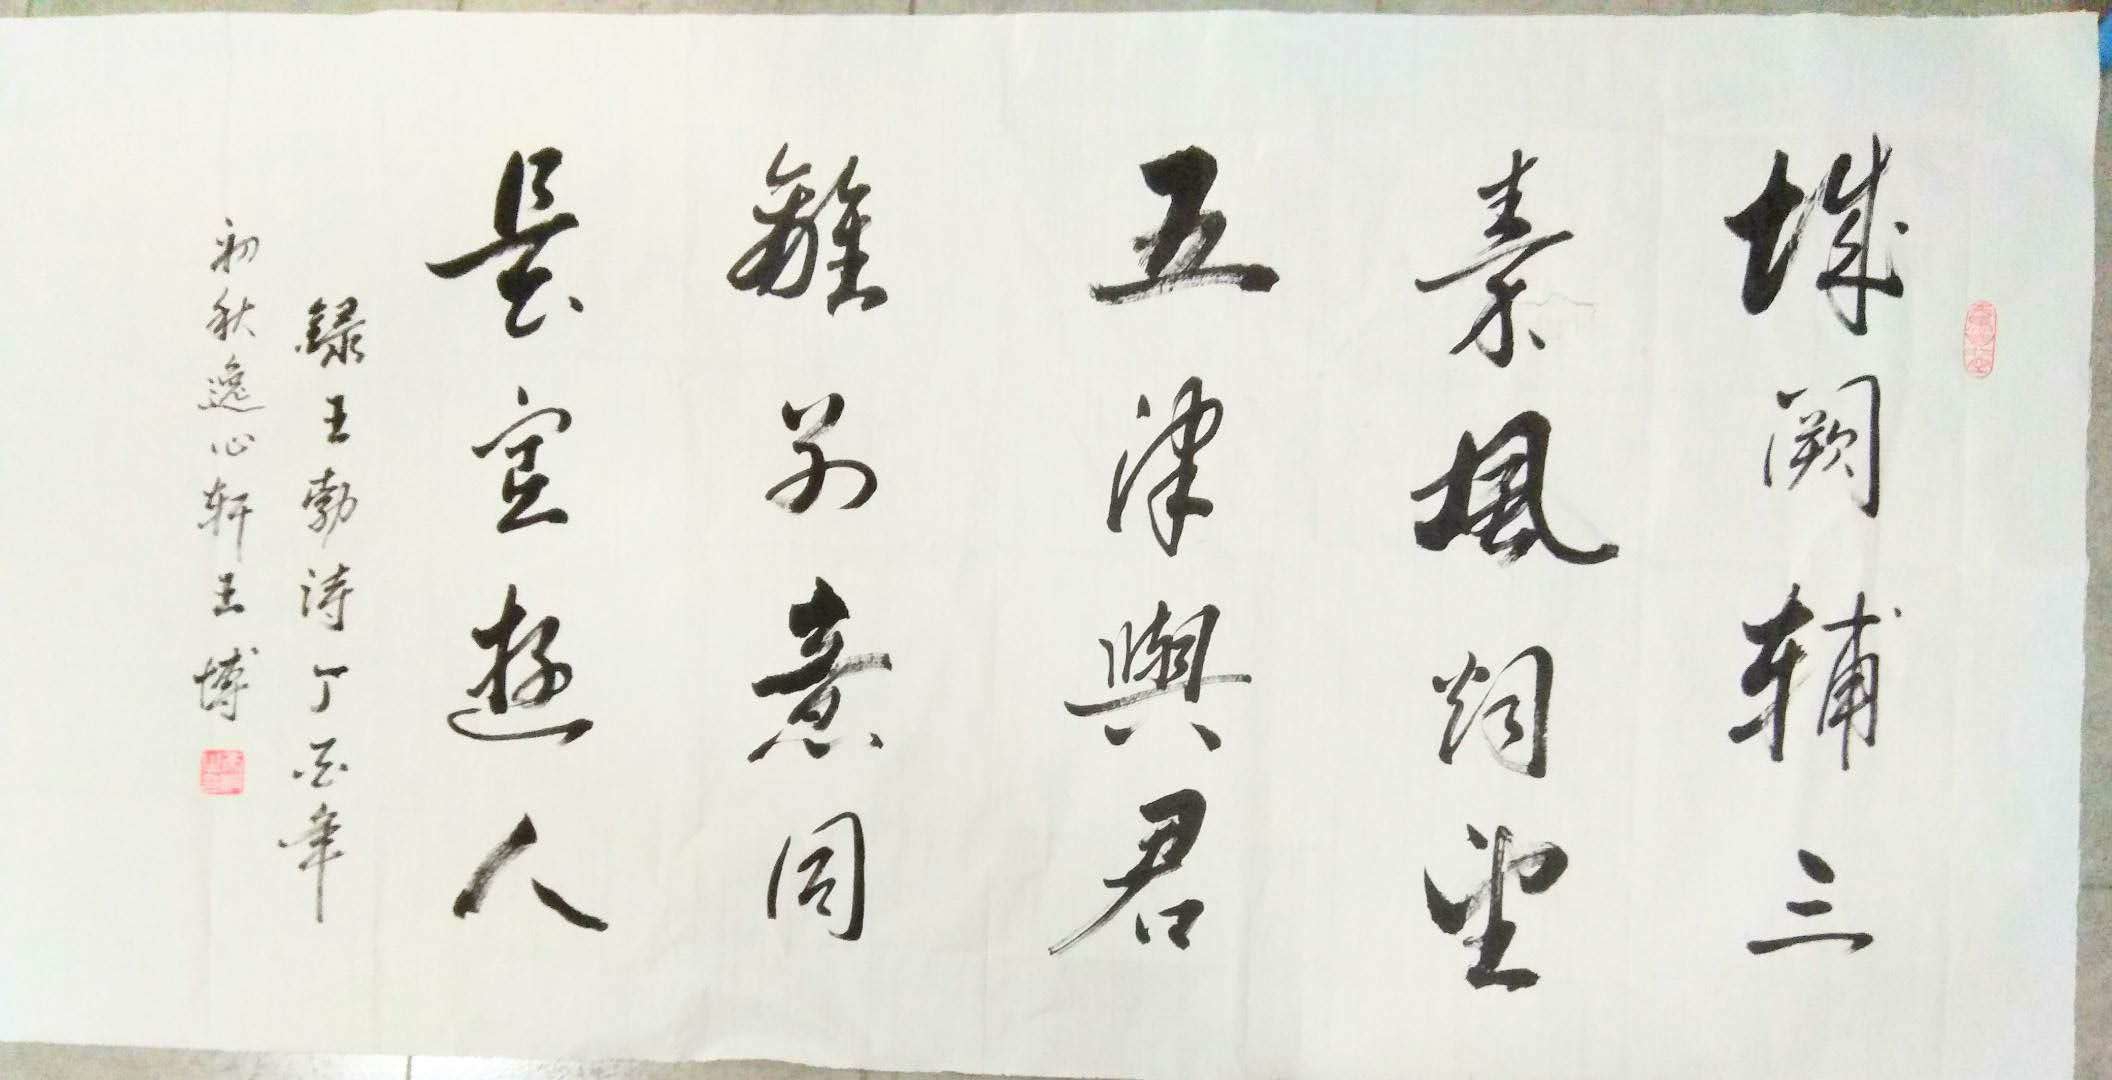 城闕輔三
秦風烟望
五津與君
離别意同
是宦遊人
録王勃詩丁酉年
初秋逸心軒王博